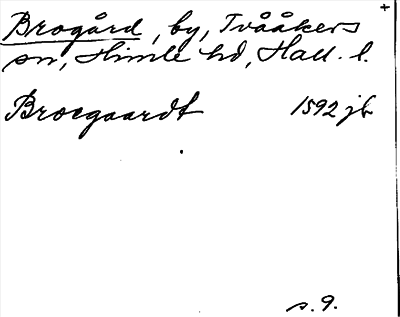 Brogård, by, Tvååkers +
sn, Himle hd, Hall. l.
Broegaardt 1592 jb
s. 9.